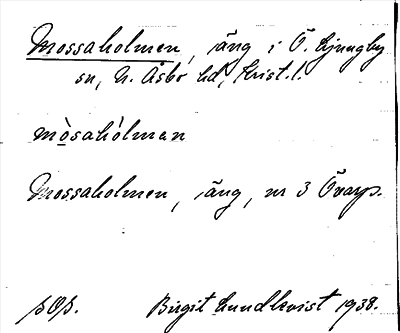 Mossaholmen, äng i Ö. Ljungby
sn, N. Åsbo hd, Krist. l.
mò̲sahòlman
Mossaholmen, äng, nr 3 Övarp.
Birgit Lundkvist 1938.